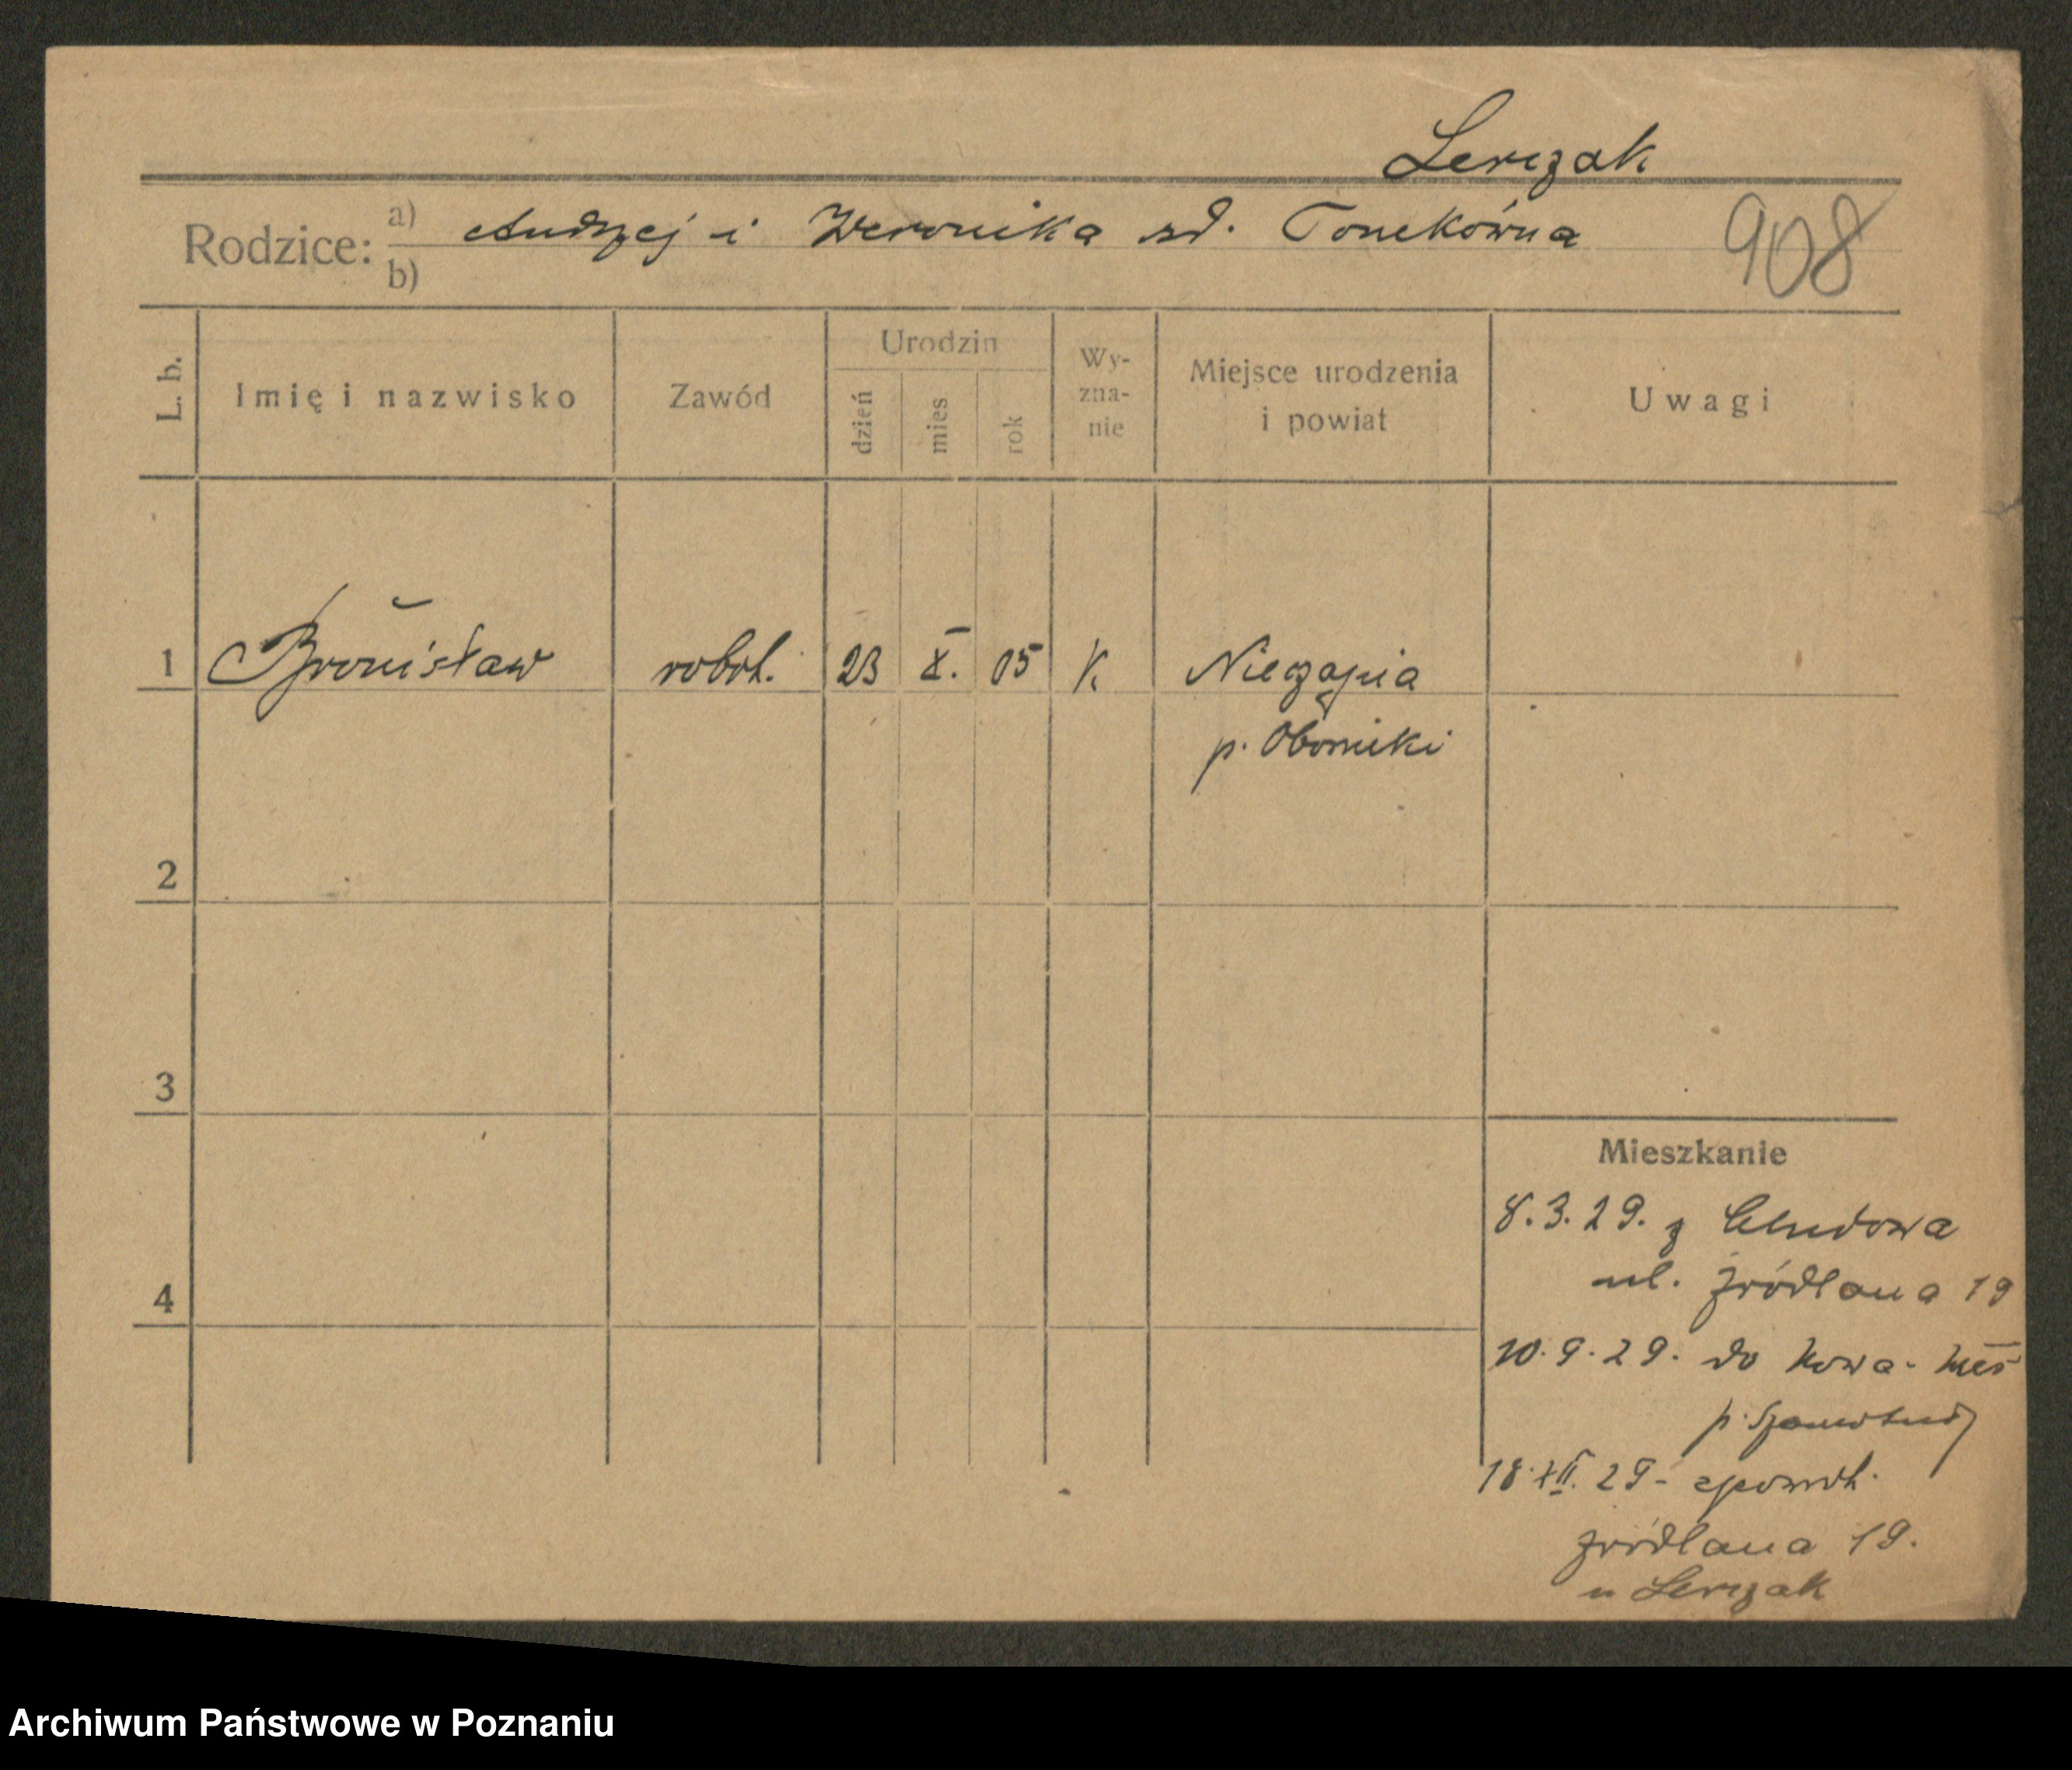 Lerczak
Rodzice: a) Andrzej i Weronika zd. Tomkówna
b)
908
L. b.
Imię i nazwisko
Zawód
Urodzin
dzień
mies
rok
Wy-
zna-
nie
Miejsce urodzenia
i powiat
Uwagi
1 Bronisław robot. 23 X. 05 K Nieczajna
p. Oborniki
2
3
4
Mieszkanie
8.3.29. z Chludowa
ul. Źródlana 19
10.9.29. do
p. Szamotuły
18.XII.29- zpowrot.
Źródlana 19.
u Lerczak
Archiwum Państwowe w Poznaniu